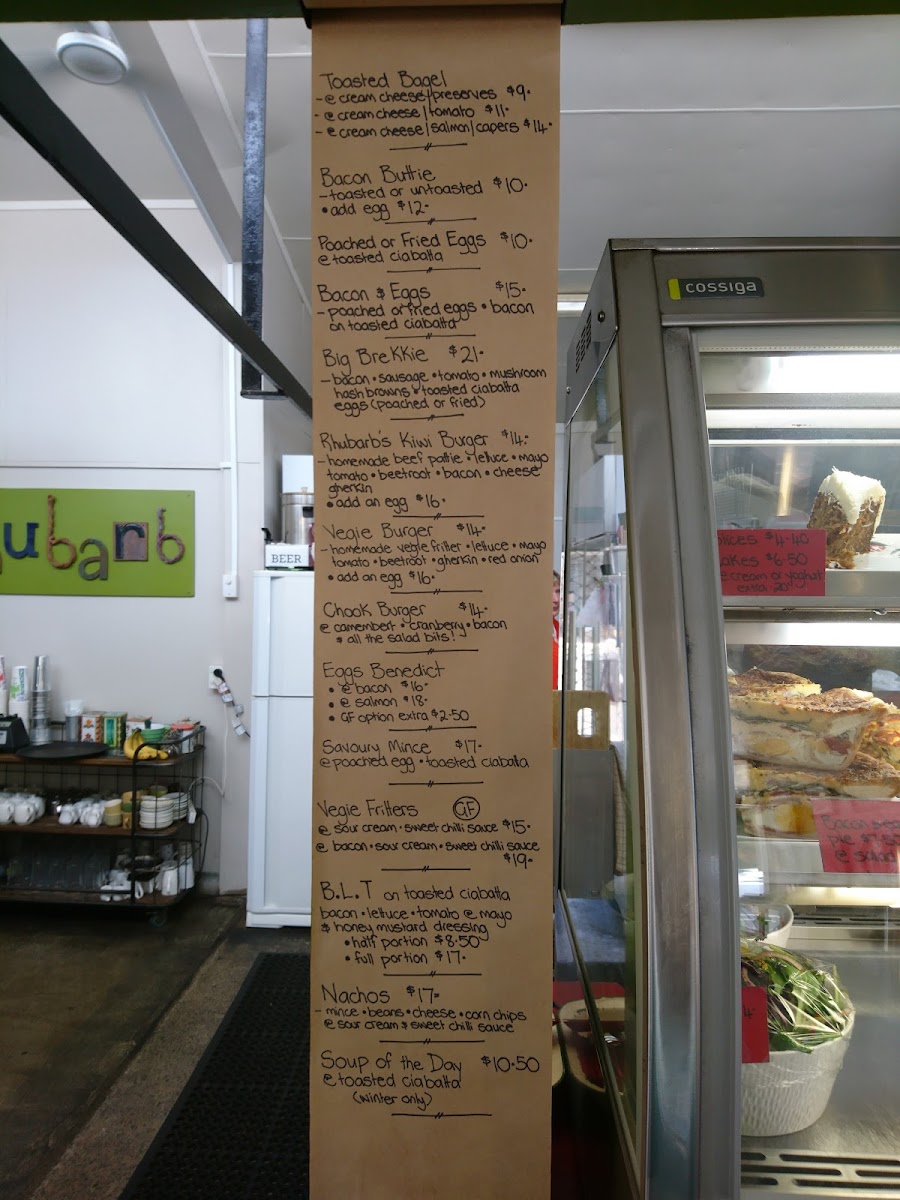 Toasted Bagel
- @ cream cheese/preserves $9-
- @ cream cheese/tomato $11-
- @ cream cheese/salmon/capers $14-
Bacon Buttie
- toasted or untoasted $10-
• add egg $12-
Poached or Fried Eggs $10-
@ toasted ciabatta
Bacon & Eggs $15-
- poached or fried eggs • bacon
on toasted ciabatta
Big Brekkie $21-
- bacon • sausage • tomato • mushroom
hash browns • toasted ciabatta
eggs (poached or fried)
Rhubarb's Kiwi Burger $14-
- homemade beef pattie • lettuce • mayo
tomato • beetroot • bacon • cheese
gherkin
• add an egg $16-
Vegie Burger $14-
- homemade vegie fritter • lettuce • mayo
tomato • beetroot • gherkin • red onion
• add an egg $16-
Chook Burger $14-
@ camembert • cranberry • bacon
& all the salad bits!
Eggs Benedict
• @ bacon $16-
• @ salmon $18-
• GF option extra $2-50
Savoury Mince $17-
@ poached egg • toasted ciabatta
Vegie Fritters GF
@ sour cream • sweet chilli sauce $15-
@ bacon • sour cream • sweet chilli sauce
$19-
B.L.T on toasted ciabatta
bacon • lettuce • tomato @ mayo
& honey mustard dressing
• half portion $8-50
• full portion $17-
Nachos $17-
- mince • beans • cheese • corn chips
@ sour cream & sweet chilli sauce
Soup of the Day $10-50
@ toasted ciabatta
(winter only)
ubarb
BEER
cossiga
lices $4-40
akes $6-50
cream or yoghurt
extra
Bacon
pie $7.50
@ salad